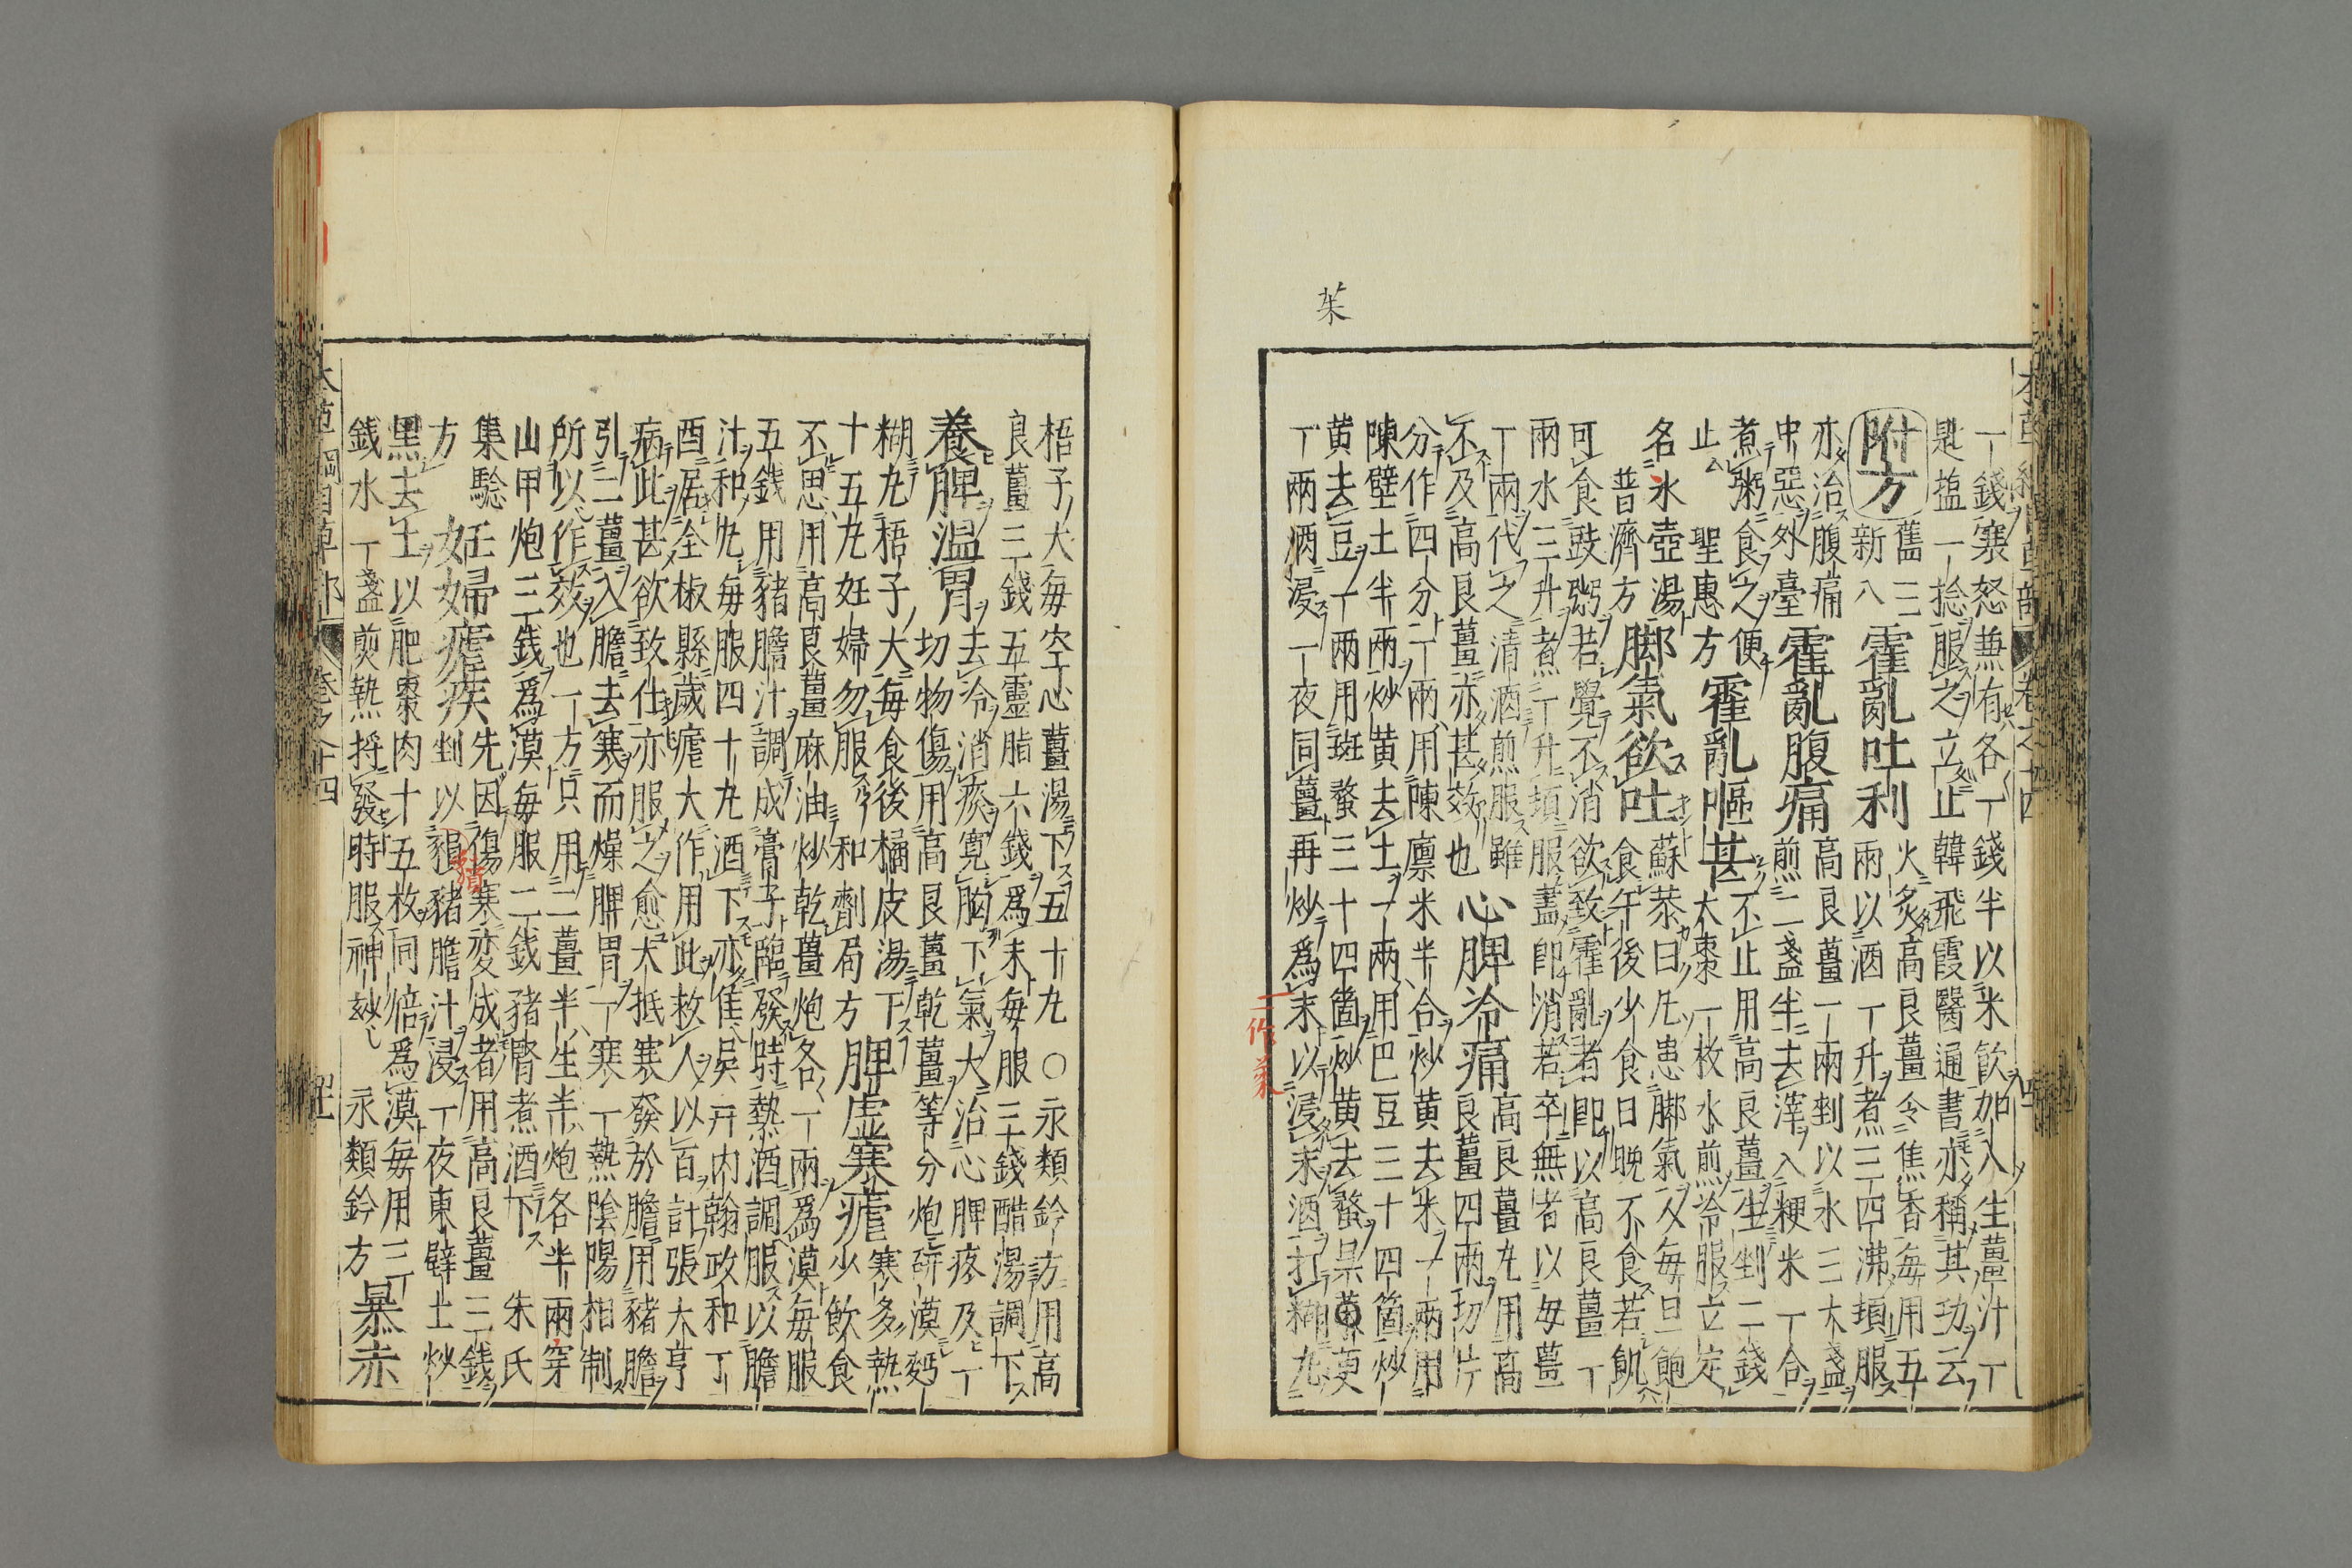 本草綱目草部 卷之十四
一錢寒怒兼有各一錢半以米飲加入生薑汁一
匙搵一捻服之立止韓飛霞醫通書亦稱其功云
附方 舊三
新八 霍亂吐利 火炙高良薑令焦香毎用五
兩以酒一升煮三四沸頓服
亦治腹痛
中惡外臺 霍亂腹痛 高良薑一兩剉以水三大盞
煎二盞半去滓入粳米一合
煮粥食之便
止 聖惠方 霍亂嘔甚 不止用高良薑生剉二錢
大棗一枚水煎冷服立定
名氷壺湯
普濟方 脚氣欲吐 蘇恭曰凡患脚氣人毎旦飽
食午後少食日晩不食若飢
可食豉粥若覺不消欲致霍亂者即以高良薑一
兩水三升煮一升頓服蓋即消若卒無者以母薑
一兩代之清酒煎服雖
不及高良薑亦甚效也 心脾冷痛 高良薑丸用高
良薑四兩切片
分作四分一兩用陳廩米半合炒黄去米一兩用
陳壁土半兩炒黄去土一兩用巴豆三十四箇炒
黄去豆一兩用斑蝥三十四箇炒黄去蝥呉茱萸
一兩酒浸一夜同薑再炒爲末以浸末酒打糊丸
茱
一作茱
梧子大毎空心薑湯下五十丸○永類鈐方用高
良薑三錢五靈脂六錢爲末毎服三錢醋湯調下
養脾温胃 去冷消痰寛胸下氣大治心脾疼及一
切物傷用高良薑乾薑等分炮研漠麪
糊丸梧子大毎食後橘皮湯下
十五丸妊婦勿服 和劑局方 脾虚寒瘧 寒多熱
少飲食
不思用高良薑麻油炒乾薑炮各一兩爲漠毎服
五錢用豬膽汁調成膏子臨發時熱酒調服以膽
汁和丸毎服四十丸酒下亦佳吳幵内翰政和丁
酉居全椒縣歲瘧大作用此救人以百計張大亨
病此甚欲致仕亦服之愈大抵寒發於膽用豬膽
引二薑入膽去寒而燥脾胃一寒一熱陰陽相制
所以作效也一方只用二薑半生半炮各半兩穿
山甲炮三錢爲漠毎服二錢豬腎煮酒下 朱氏
集驗
方 妊婦瘧疾 先因傷寒変成者用高良薑三錢
剉以豶豬膽汁浸一夜東壁土炒
黑去土以肥棗肉十五枚同焙爲漠毎用三
錢水一盞煎熱将發時服神妙 永類鈐方 暴赤
本草綱目草部 卷之十四